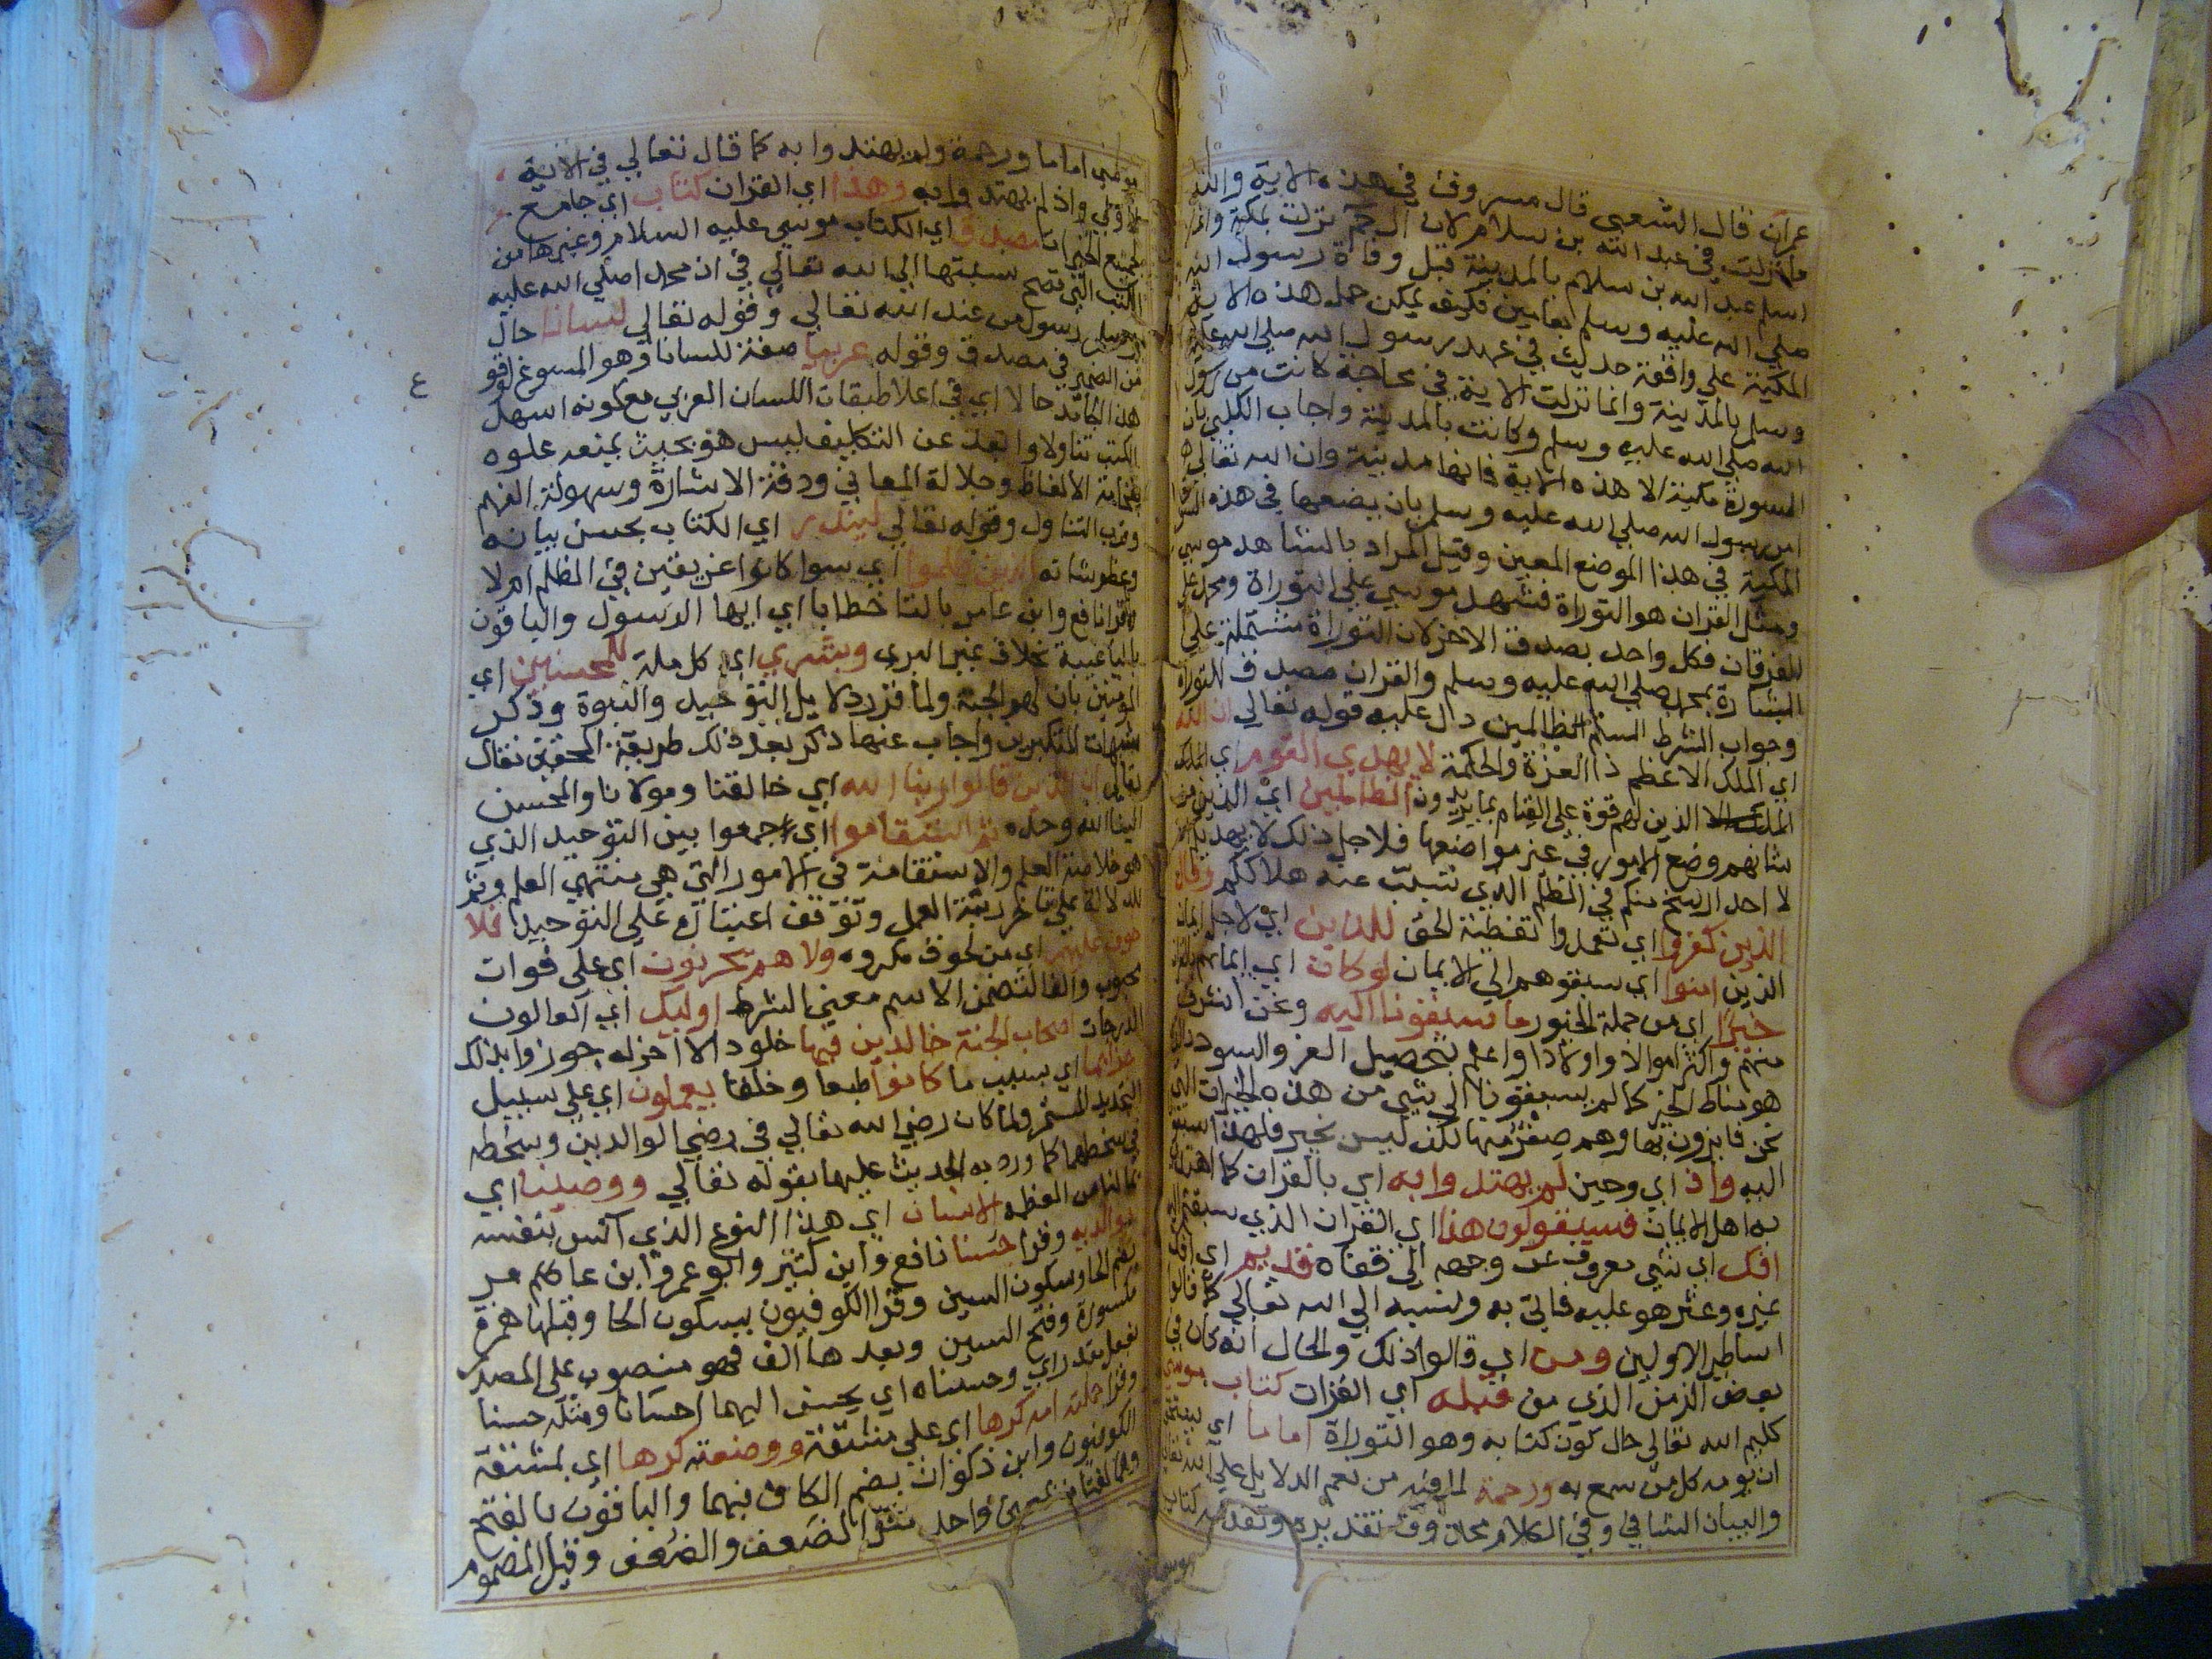 عران قال الشعبي قال مسروق في هذه الاية والله
ما نزلت في عبد الله بن سلام لان آل حم نزلت بمكة وانما
اسلم عبد الله بن سلام بالمدينة قبل وفاة رسول الله
صلي الله عليه وسلم بعامين فكيف يمكن حمل هذه الاية
المكية علي واقعة حدثت في عهد رسول الله صلي الله عليه
وسلم بالمدينة وانما نزلت الاية في محاجة كانت من رسول
الله صلي الله عليه وسلم وكانت بالمدينة واجاب الكلبي بان
السورة مكية الا هذه الاية فانها مدنية وان الله تعالي
امر رسول الله صلي الله عليه وسلم بان يضعها في هذه السورة
المكية في هذا الموضع المعين وقيل المراد بالشاهد موسي
ومثل القران هو التوراة فشهد موسي علي التوراة ومحمد علي
الفرقان فكل واحد يصدق الاخر لان التوراة مشتملة علي
البشارة بمحمد صلي الله عليه وسلم والقران مصدق للتوراة
وجواب الشرط الستم ظالمين دال عليه قوله تعالي ان الله
اي الملك الاعظم ذا العزة والحكمة لا يهدي القوم اي
الذين لهم قوة علي القيام بما يريدون الظالمين اي الذين من
شانهم وضع الامور في غير مواضعها فلاجل ذلك لا يهديهم
لا احد ارسخ منكم في الظلم الذي تسبب عنه هلاككم وقال
الذين كفروا اي تعمدوا تغطية الحق للذين اي لاجل ايمان
الذين امنوا اي سبقوهم الي الايمان لو كان اي ايمانهم
خيرا اي من جملة الخيور ما سبقونا اليه ونحن اشرف
منهم واكثر اموالا واولادا واعلم بتحصيل العز والسودد
هو مناط الخير كما لم يسبقونا الي شي من هذه الخيرات التي
نحن فايزون بها وهم صفر منها لكنه ليس بخير فلهذا سبقوا
اليه واذ اي وحين لم يهتدوا به اي بالقران كما اهتدي
به اهل الايمان فسيقولون هذا اي القران الذي سبقتم
افك اي شي مصروف عن وجهه الي قفاه قديم اي افك
غيره وعثر هو عليه فاتي به ونسبه الي الله تعالي كما قالوا
اساطير الاولين ومن اي قالوا ذلك والحال انه كان في
بعض الزمن الذي من قبله اي القران كتاب موسي
كليم الله تعالي حال كون كتابه وهو التوراة اماما اي
ان يومه كل من سمع به ورحمة لما فيه من نعم الدلايل علي الله تعالي
والبيان الشافي وفي الكلام محذوف تقديره وتقدمه كتاب
موسي اماما ورحمة ولم يهتدوا به كما قال تعالي في الاية
الاولي واذ لم يهتدوا به وهذا اي القران كتاب اي جامع
لجميع الخيرات مصدق اي الكتاب موسي عليه السلام وغيرها من
الكتب التي تصح نسبتها الي الله تعالي في ان محمدا صلي الله عليه
وسلم رسول من عند الله تعالي وقوله تعالي لسانا حال
من الضمير في مصدق وقوله عربيا صفة للسانا وهو المسوغ لوقو
هذا الجامد حالا اي في اعلا طبقات اللسان العربي مع كونه اسهل
الكتب تناولا وابعد عن التكليف ليس هو بحيث يمنعه علوه
بفخامة الالفاظ وجلالة المعاني ودقة الاشارة وسهولة الفهم
وقرب التناول وقوله تعالي لينذر اي الكتاب بحسن بيانه
وعظم شانه الذين ظلموا اي سوا كانوا عريقين في الظلم ام لا
وقرا نافع وابن عامر بالتا خطابا اي ايها الرسول والباقون
باليا غيبة بخلاف عن البزي وبشري اي كل ملة للمحسنين اي
المومنين بان لهم الجنة ولما قرر دلايل التوحيد والنبوة وذكر
شبهات المنكرين واجاب عنها ذكر بعد ذلك طريقة المحقين فقال
تعالي ان الذين قالوا ربنا الله اي خالقنا ومولانا والمحسن
الينا الله وحده ثم استقاموا اي اجمعوا بين التوحيد الذي
هو خلاصة العلم والاستقامة في الامور التي هي منتهي العلم وثم
للدلالة علي تاخر رتبة العمل وتوقف اعتباره علي التوحيد فلا
خوف عليهم اي من لحوق مكروه ولا هم يحزنون اي علي فوات
محبوب والفا لتضمن الاسم معني الشرط اوليك اي العالون
الدرجات اصحاب الجنة خالدين فيها خلودا لا اخر له جوزوا بذلك
جزا بما اي بسبب ما كانوا طبعا وخلقا يعملون اي علي سبيل
التجديد المستمر ولما كان رضي الله تعالي في رضي الوالدين وسخطه
في سخطهما كما ورد به الحديث عليهما بقوله تعالي ووصينا اي
بما لنا من العظمة الانسان اي هذا النوع الذي انس بنفسه
بوالديه وقرا حسنا نافع وابن كثير وابو عمرو وابن عامر
بضم الحا وسكون السين وقرا الكوفيون بسكون الحا وقبلها همزة
مكسورة وفتح السين وبعدها الف فهو منصوب علي المصدر
بفعل مقدر اي وحسناه اي يحسن اليهما احسانا ومثله حسنا
وقرا حملته امه كرها اي علي مشقة ووضعته كرها اي بمشقة
الكوفيون وابن ذكوان بضم الكاف فيهما والباقون بالفتح
وهما لغتان بمعني واحد مثل الضعف والضعف وقيل المضموم